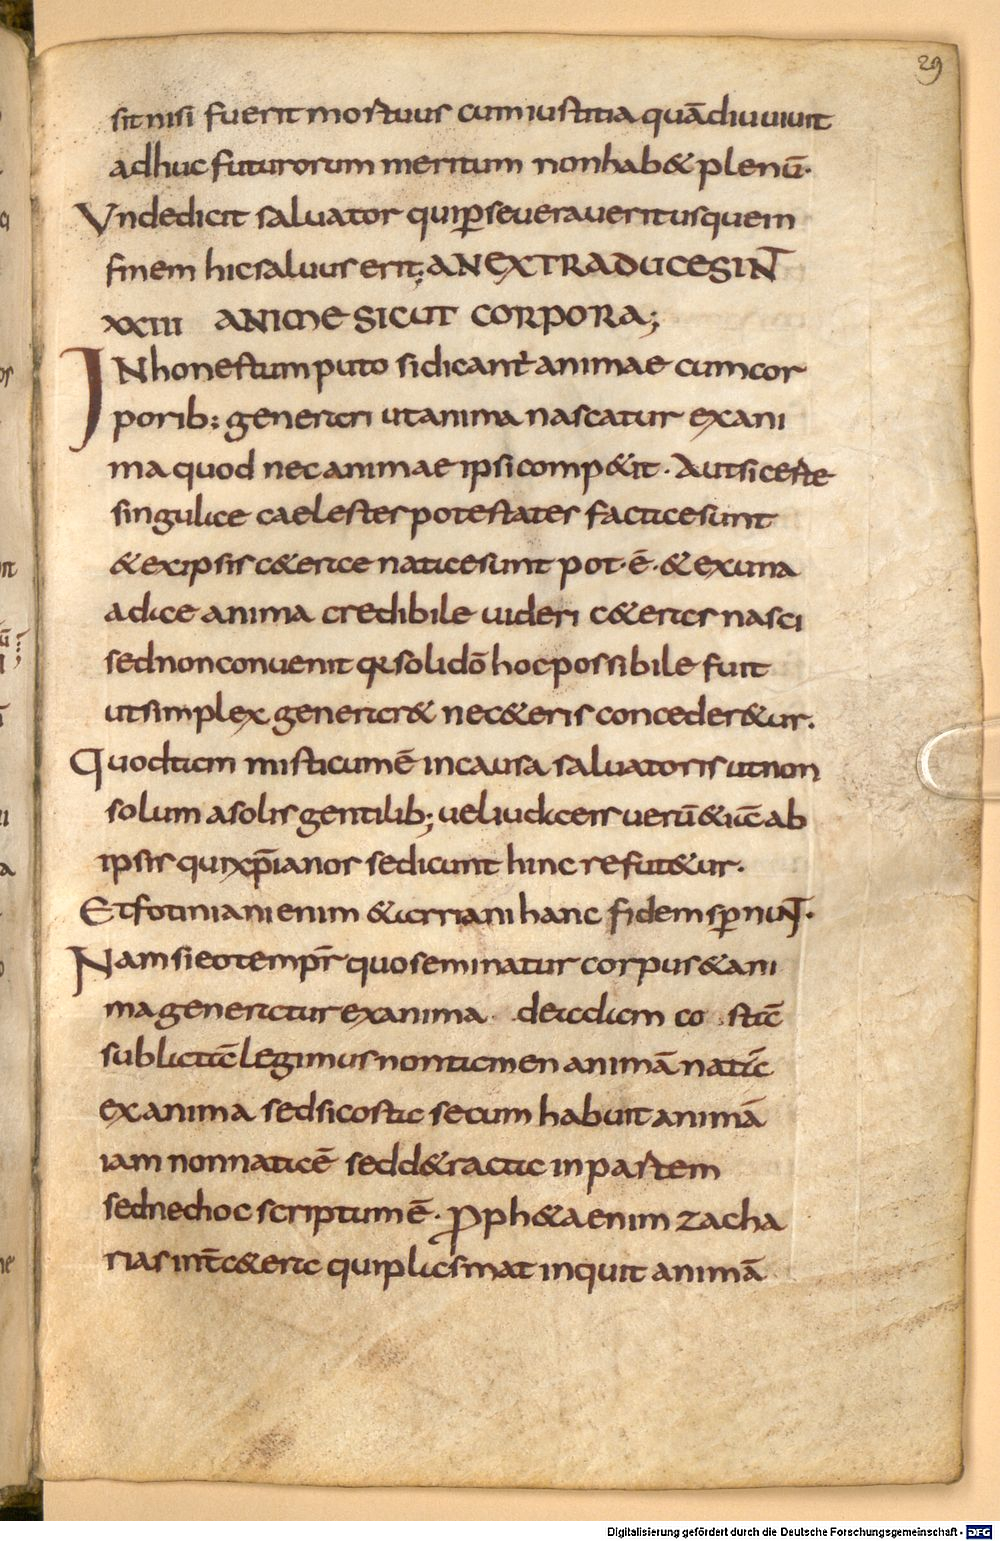 29
sit nisi fuerit mortuus cum iustitia quādiu uiuit
adhuc futurorum meritum non hab& plenū·
Vnde dicit saluator qui ꝑseuerauerit usque in
finem hic saluus erit; AN EX TRADUCE SINT
XXIII ANIME SICUT CORPORA;
INhonestum puto si dicant animae cum cor
porib; generari ut anima nascatur ex ani
ma quod nec animae ipsi comp&it· Aut si caeste
singulae caelestes potestates factae sunt
& ex ipsis c&erae natae sunt pot·ē· & ex una
adae anima credibile uideri c&eras nasci
sed non conuenit qR solidō hoc possibile fuit
ut simplex generar& nec c&eris conceder&ur.
Quod tam misticum ē in causa saluatoris ut non
solum a solis gentilib; uel iudaeis uerū &iā ab
ipsis qui xp̄ianos se dicunt hinc refut&ur·
Et fotiniani enim & arriani hanc fidem spernuNT·
Nam si eo tempr̄ quo seminatur corpus & ani
ma generatur ex anima de adam co stā
sublatā legimus non tamen animā natā
ex anima sed si costa secum habuit animā
iam non nata ē sed d&racta in partem
sed nec hoc scriptum ē· Proph&a enim zacha
rias int̄ c&era qui plasmat inquit animā
Digitalisierung gefördert durch die Deutsche Forschungsgemeinschaft - DFG